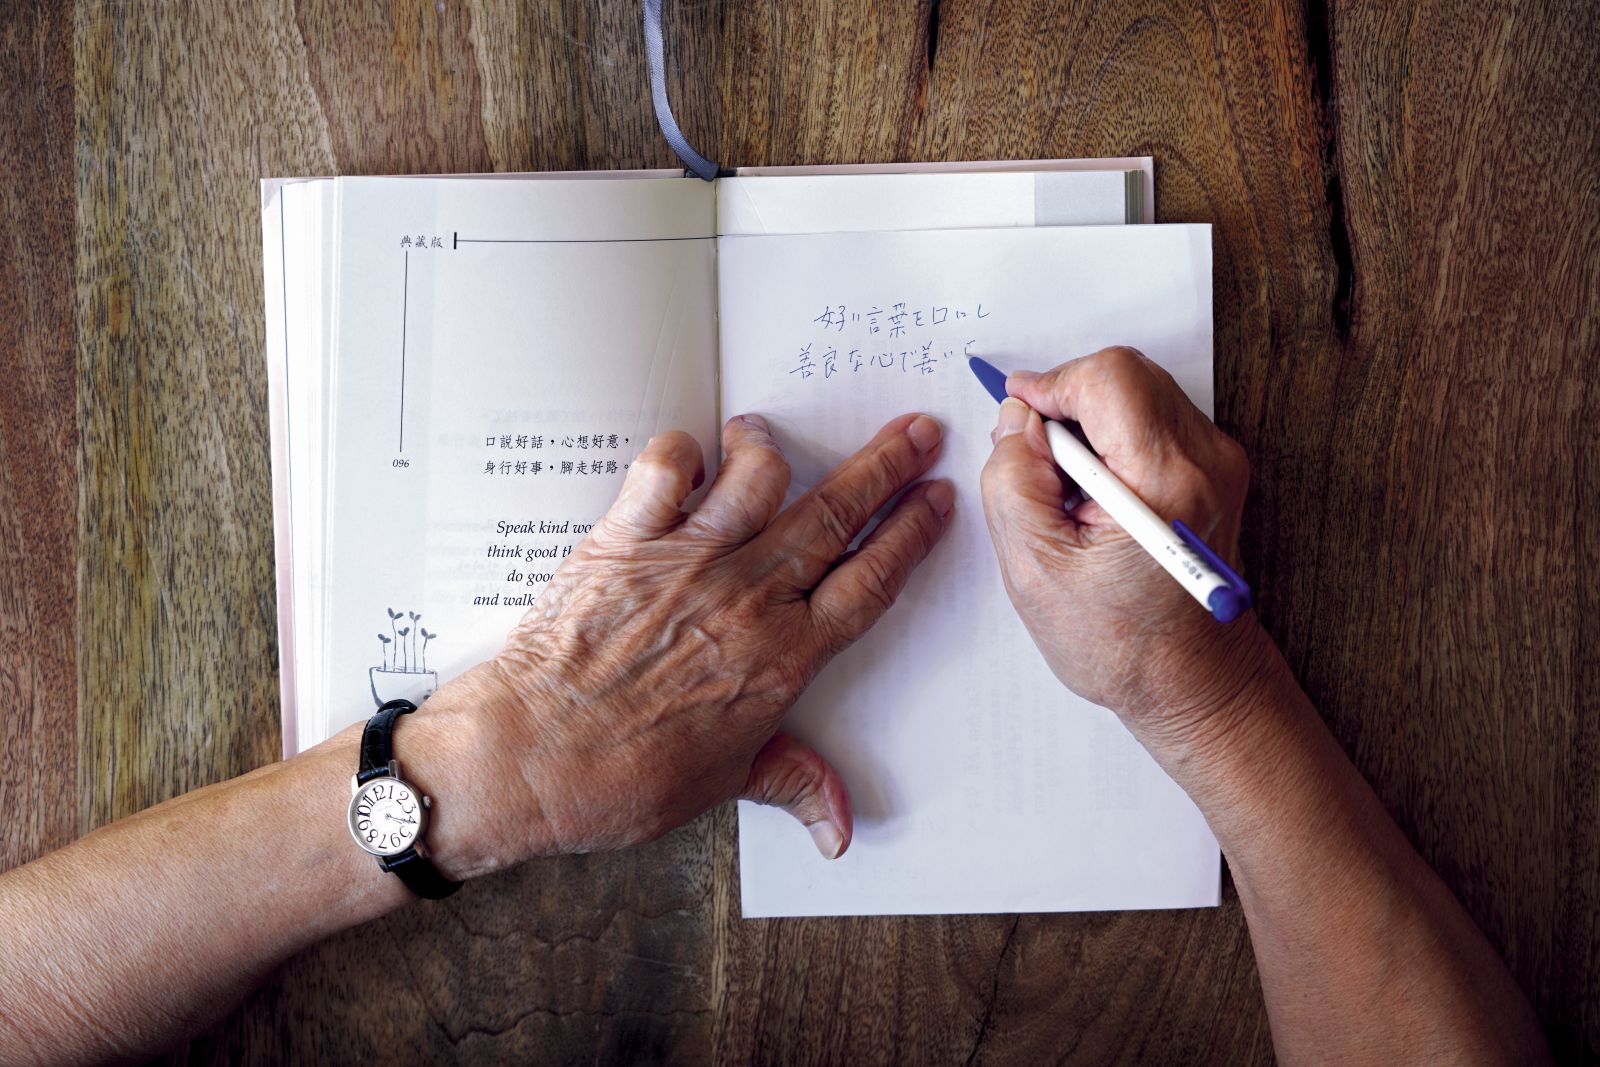 典藏版
096
口說好話，心想好意，
身行好事，腳走好路。
Speak kind
think good
do good
and walk
好い言葉を口にし
善良な心で善い
12
1
2
3
4
5
6
7
8
9
10
11